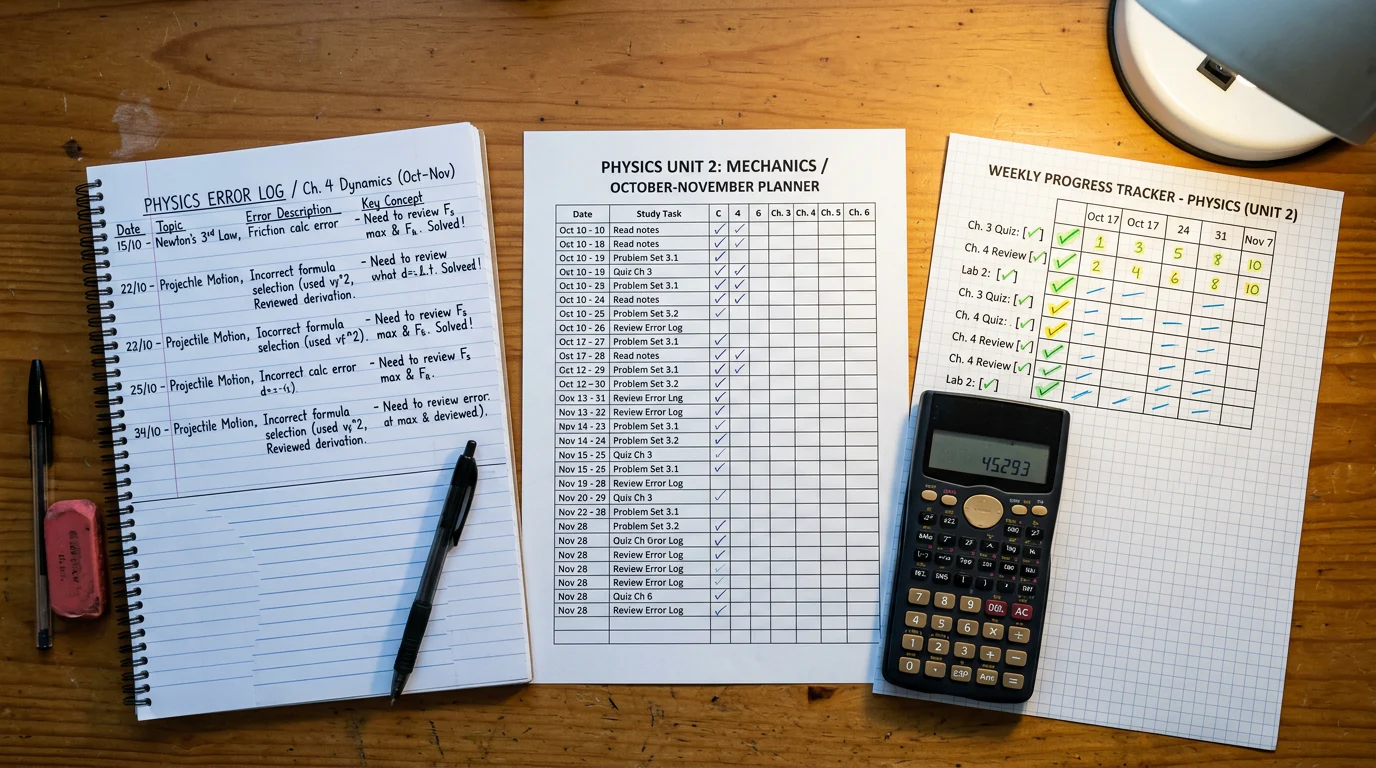 PHYSICS ERROR LOG / Ch. 4 Dynamics (Oct-Nov)
Date Topic Error Description Key Concept
15/10 - Newton's 3rd Law, Friction calc error - Need to review Fs
max & FR. Solved!
22/10 - Projectile Motion, Incorrect formula - Need to review
selection (used vf^2,
Reviewed derivation.
22/10 - Projectile Motion, Iocorrect formula - Need to review Fs
selection (used vf^2). max & Fs. Solved!
25/10 - Projectile Motion, Incorrect calc error - Need to review Fs
max & FR.
34/10 - Projectile Motion, Incorrect formula - Need to review error.
selection (used vf^2, at max & deviewed).
Reviewed derivation.
PHYSICS UNIT 2: MECHANICS /
OCTOBER-NOVEMBER PLANNER
Date Study Task C 4 6 Ch. 3 Ch. 4 Ch. 5 Ch. 6
Oct 10 - 10 Read notes ✓ ✓
Oct 10 - 18 Read notes ✓ ✓
Oct 10 - 19 Problem Set 3.1 ✓
Oct 10 - 19 Quiz Ch 3 ✓ ✓
Oct 10 - 23 Problem Set 3.1 ✓ ✓
Oct 10 - 24 Read notes ✓ ✓
Oct 10 - 25 Problem Set 3.2 ✓
Oct 10 - 26 Review Error Log
Oct 17 - 27 Problem Set 3.1 ✓
Ost 17 - 28 Read notes ✓ ✓
12 - 29 Problem Set 3.1 ✓ ✓
Oct 12 - 30 Problem Set 3.2 ✓
13 - 31 Review Error Lng ✓
Nov 13 - 22 Review Error Log ✓
Nov 14 - 23 Problem Set 3.1 ✓
Nov 14 - 24 Problem Set 3.2 ✓
Nov 15 - 25 Quiz Ch 3 ✓
Nov 15 - 25 Problem Set 3.1 ✓
Nov 19 - 28 Review Error Log
Nov 20 - 29 Quis Ch 3 ✓
Nov 22 - Problem Set 3.1
Nov 28 Problem Set 3.2 ✓
Nov 28 Quiz Ch Log ✓
Nov 28 Review Error Log ✓
Nov 28 Review Error Log ✓
Nov 28 Review Error Log ✓
Nov 28 Quiz Ch 6 ✓
Nov 28 Review Error Log ✓
WEEKLY PROGRESS TRACKER - PHYSICS (UNIT 2)
Oct 17 Oct 17 24 31 Nov 7
Ch. 3 Quiz: [✓] ✓ 1 3 5 8 10
Ch. 4 Review [✓] ✓ 2 4 6 8 10
Lab 2: [✓] ✓
Ch. 3 Quiz: [✓] ✓
Ch. 4 Quiz: [✓] ✓
Ch. 4 Review [✓] ✓
Ch. 4 Review [✓] ✓
Lab 2: [✓] ✓
45293
7 8 9 AC
4 5 6 × ÷
1 2 3 + −
0 . EXP Ans =